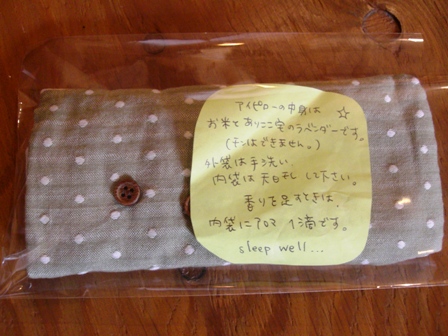 アイピローの中身は ☆
お米とありここ宅のラベンダーです。
(チンはできません。)
外袋は手洗い
内袋は天日干して下さい。
香りを足すときは、
内袋にアロマ 1滴です。
sleep well...